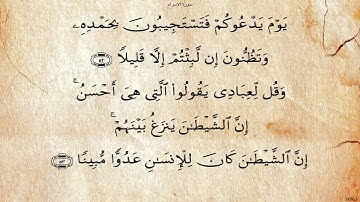 سورة الإسراء
يَوْمَ يَدْعُوكُمْ فَتَسْتَجِيبُونَ بِحَمْدِهِۦ
وَتَظُنُّونَ إِن لَّبِثْتُمْ إِلَّا قَلِيلًا ﴿٥٢﴾
وَقُل لِّعِبَادِى يَقُولُوا۟ ٱلَّتِى هِىَ أَحْسَنُ ۚ
إِنَّ ٱلشَّيْطَـٰنَ يَنزَغُ بَيْنَهُمْ ۚ
إِنَّ ٱلشَّيْطَـٰنَ كَانَ لِلْإِنسَـٰنِ عَدُوًّا مُّبِينًا ﴿٥٣﴾